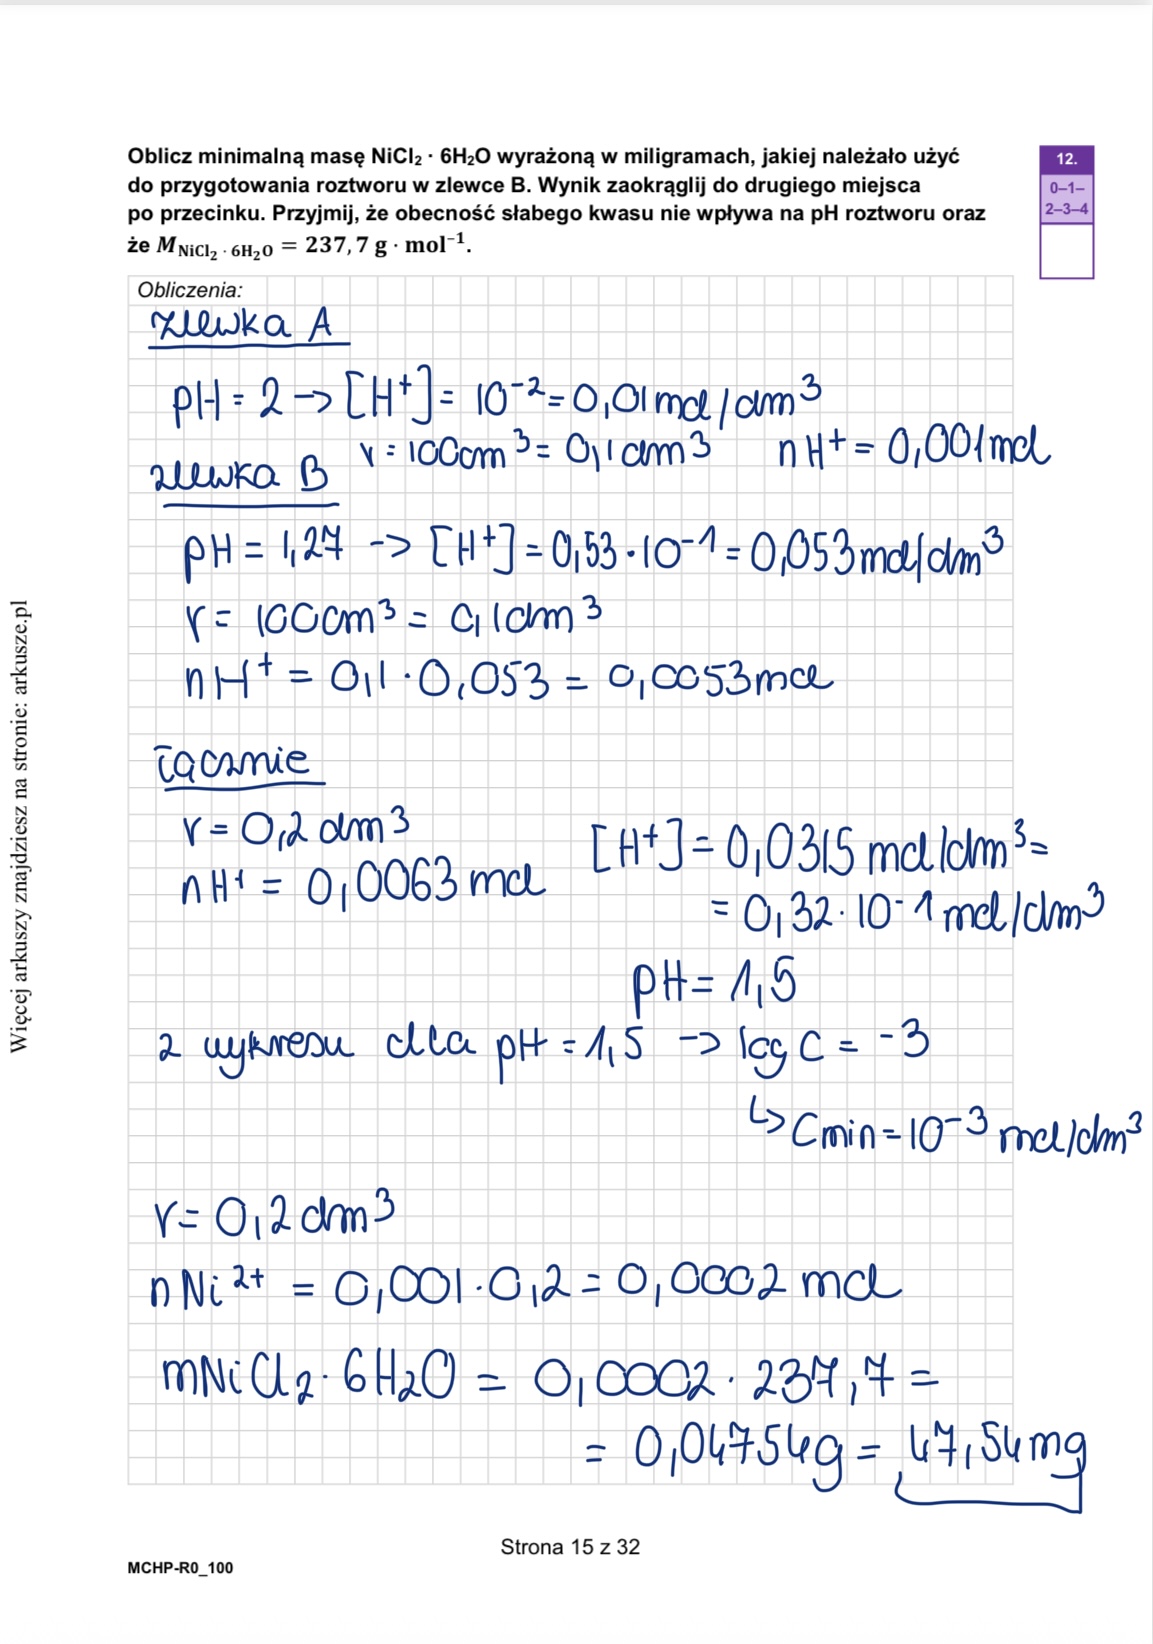 Oblicz minimalną masę NiCl₂ · 6H₂O wyrażoną w miligramach, jakiej należało użyć
do przygotowania roztworu w zlewce B. Wynik zaokrąglij do drugiego miejsca
po przecinku. Przyjmij, że obecność słabego kwasu nie wpływa na pH roztworu oraz
że M NiCl₂ · 6H₂O = 237,7 g · mol⁻¹.
12.
0–1–
2–3–4
Obliczenia:
zlewka A
pH = 2 -> [H⁺] = 10⁻² = 0,01 mol/dm³
v = 100cm³ = 0,1 dm³ nH⁺ = 0,001 mol
zlewka B
pH = 1,27 -> [H⁺] = 0,53 · 10⁻¹ = 0,053 mol/dm³
v = 100cm³ = 0,1dm³
nH⁺ = 0,1 · 0,053 = 0,0053 mol
łącznie
v = 0,2 dm³
nH⁺ = 0,0063 mol
[H⁺] = 0,0315 mol/dm³ =
= 0,32 · 10⁻¹ mol/dm³
pH = 1,5
z wykresu dla pH = 1,5 -> log c = -3
↳ Cmin = 10⁻³ mol/dm³
v = 0,2 dm³
nNi²⁺ = 0,001 · 0,2 = 0,0002 mol
mNiCl₂ · 6H₂O = 0,0002 · 237,7 =
= 0,04754g = 47,54mg
Strona 15 z 32
MCHP-R0_100
Więcej arkuszy znajdziesz na stronie: arkusze.pl